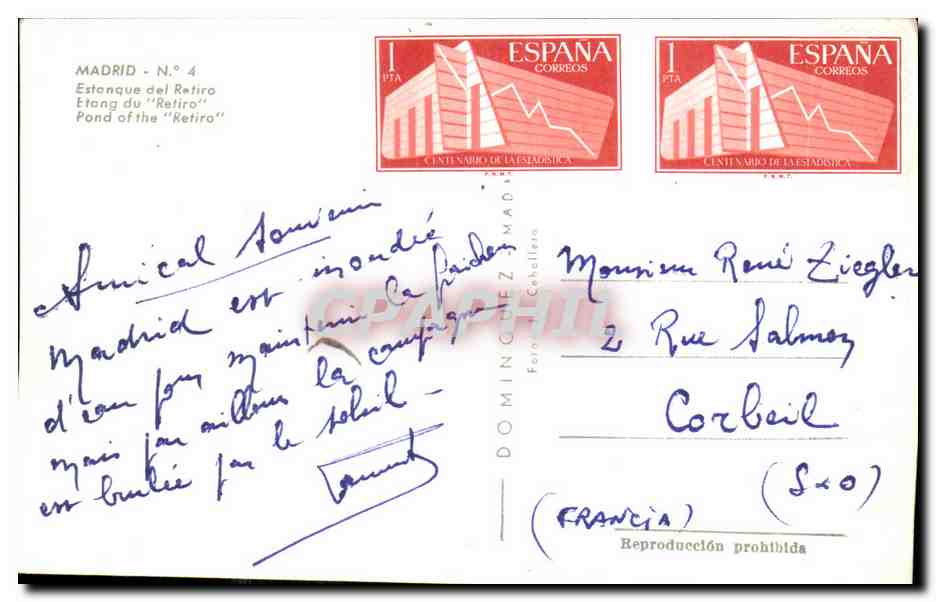 MADRID - N.º 4
Estanque del Retiro
Etang du "Retiro"
Pond of the "Retiro"
1 PTA
ESPAÑA
CORREOS
CENTENARIO DE LA ESTADISTICA
F.N.M.T.
1 PTA
ESPAÑA
CORREOS
CENTENARIO DE LA ESTADISTICA
F.N.M.T.
Amical souvenir
Madrid est inondée
d'eau pour maintenir la fraicheur
mais par ailleurs la campagne
est brulée par le soleil -
DOMINGUEZ - MADRID
Foto Caballero
Monsieur René Ziegler
2 Rue Salmon
Corbeil
(S & O)
(FRANCIA)
Reproducción prohibida
CPAPHIL